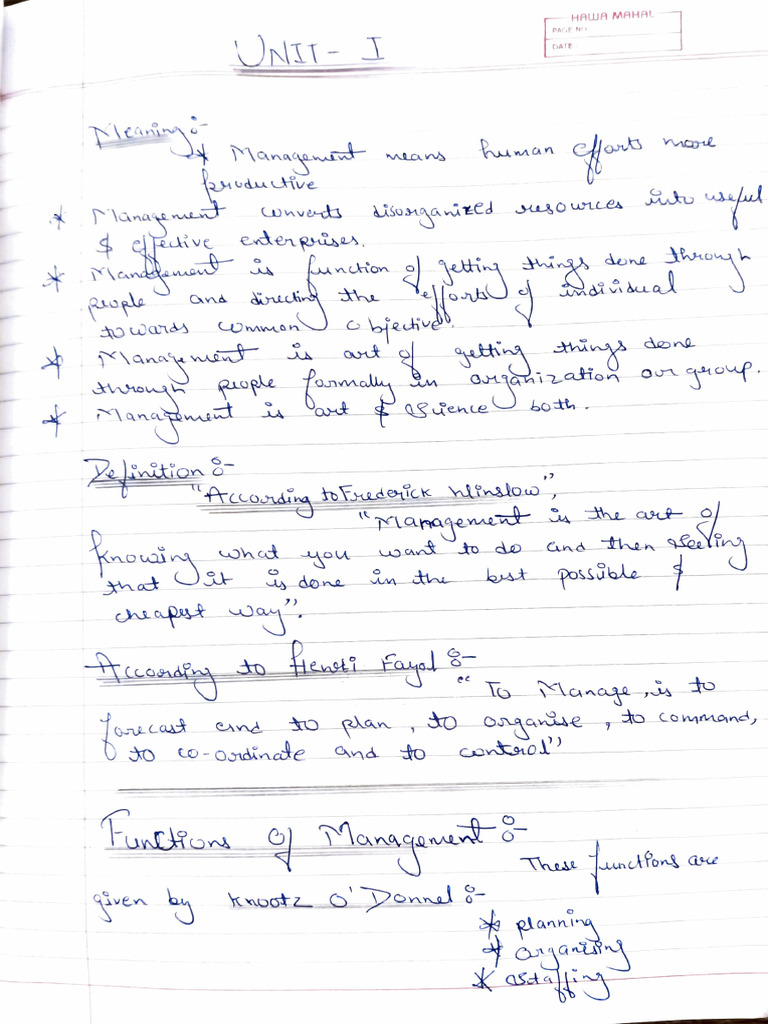 HAWA MAHAL
PAGE NO.
DATE:
UNIT - I
Meaning :-
* Management means human efforts more
productive
* Management converts disorganized resources into useful
& effective enterprises.
* Management is function of getting things done through
people and directing the efforts of individual
towards common objective.
* Management is art of getting things done
through people formally in organization our group.
* Management is art & Science both.
Definition :-
"According to Frederick Winslow",
"Management is the art of
knowing what you want to do and then seeing
that it is done in the best possible &
cheapest way".
According to Henri Fayol :-
"To Manage, is to
forecast and to plan, to organise, to command,
to co-ordinate and to control"
Functions of Management :-
These functions are
given by Knootz O'Donnel :-
* planning
* organising
* staffing